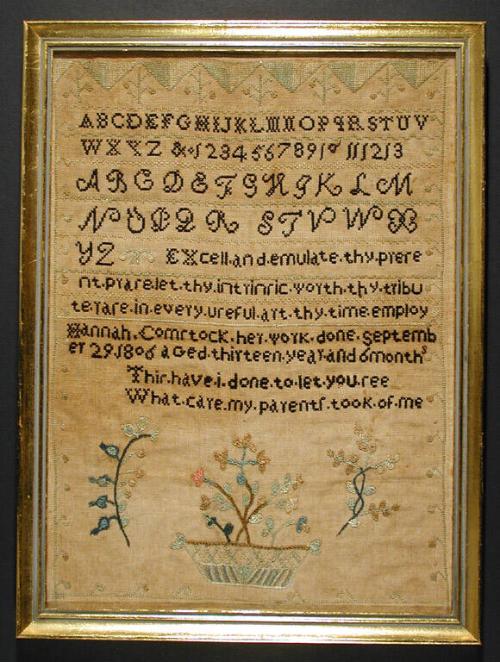 ABCDEFGHIJKLMNOPQRSTUV
WXYZ &.1234567891011 1213
ABCDEFGHIKLM
NOPQR STVWX
YZ EXcell.and.emulate.thy.preſe
nt.praſe.let.thy.intrinſic.worth.thy.tribu
te.raſe.in.every.uſeful.art.thy.time.employ
Hannah.Comſtock.her.work.done.Septemb
er 29.1806 aged.thirteen.year.and 6months
Thiſ.have.i.done.to.let.you.ſee
What.care.my.parentſ.took.of.me